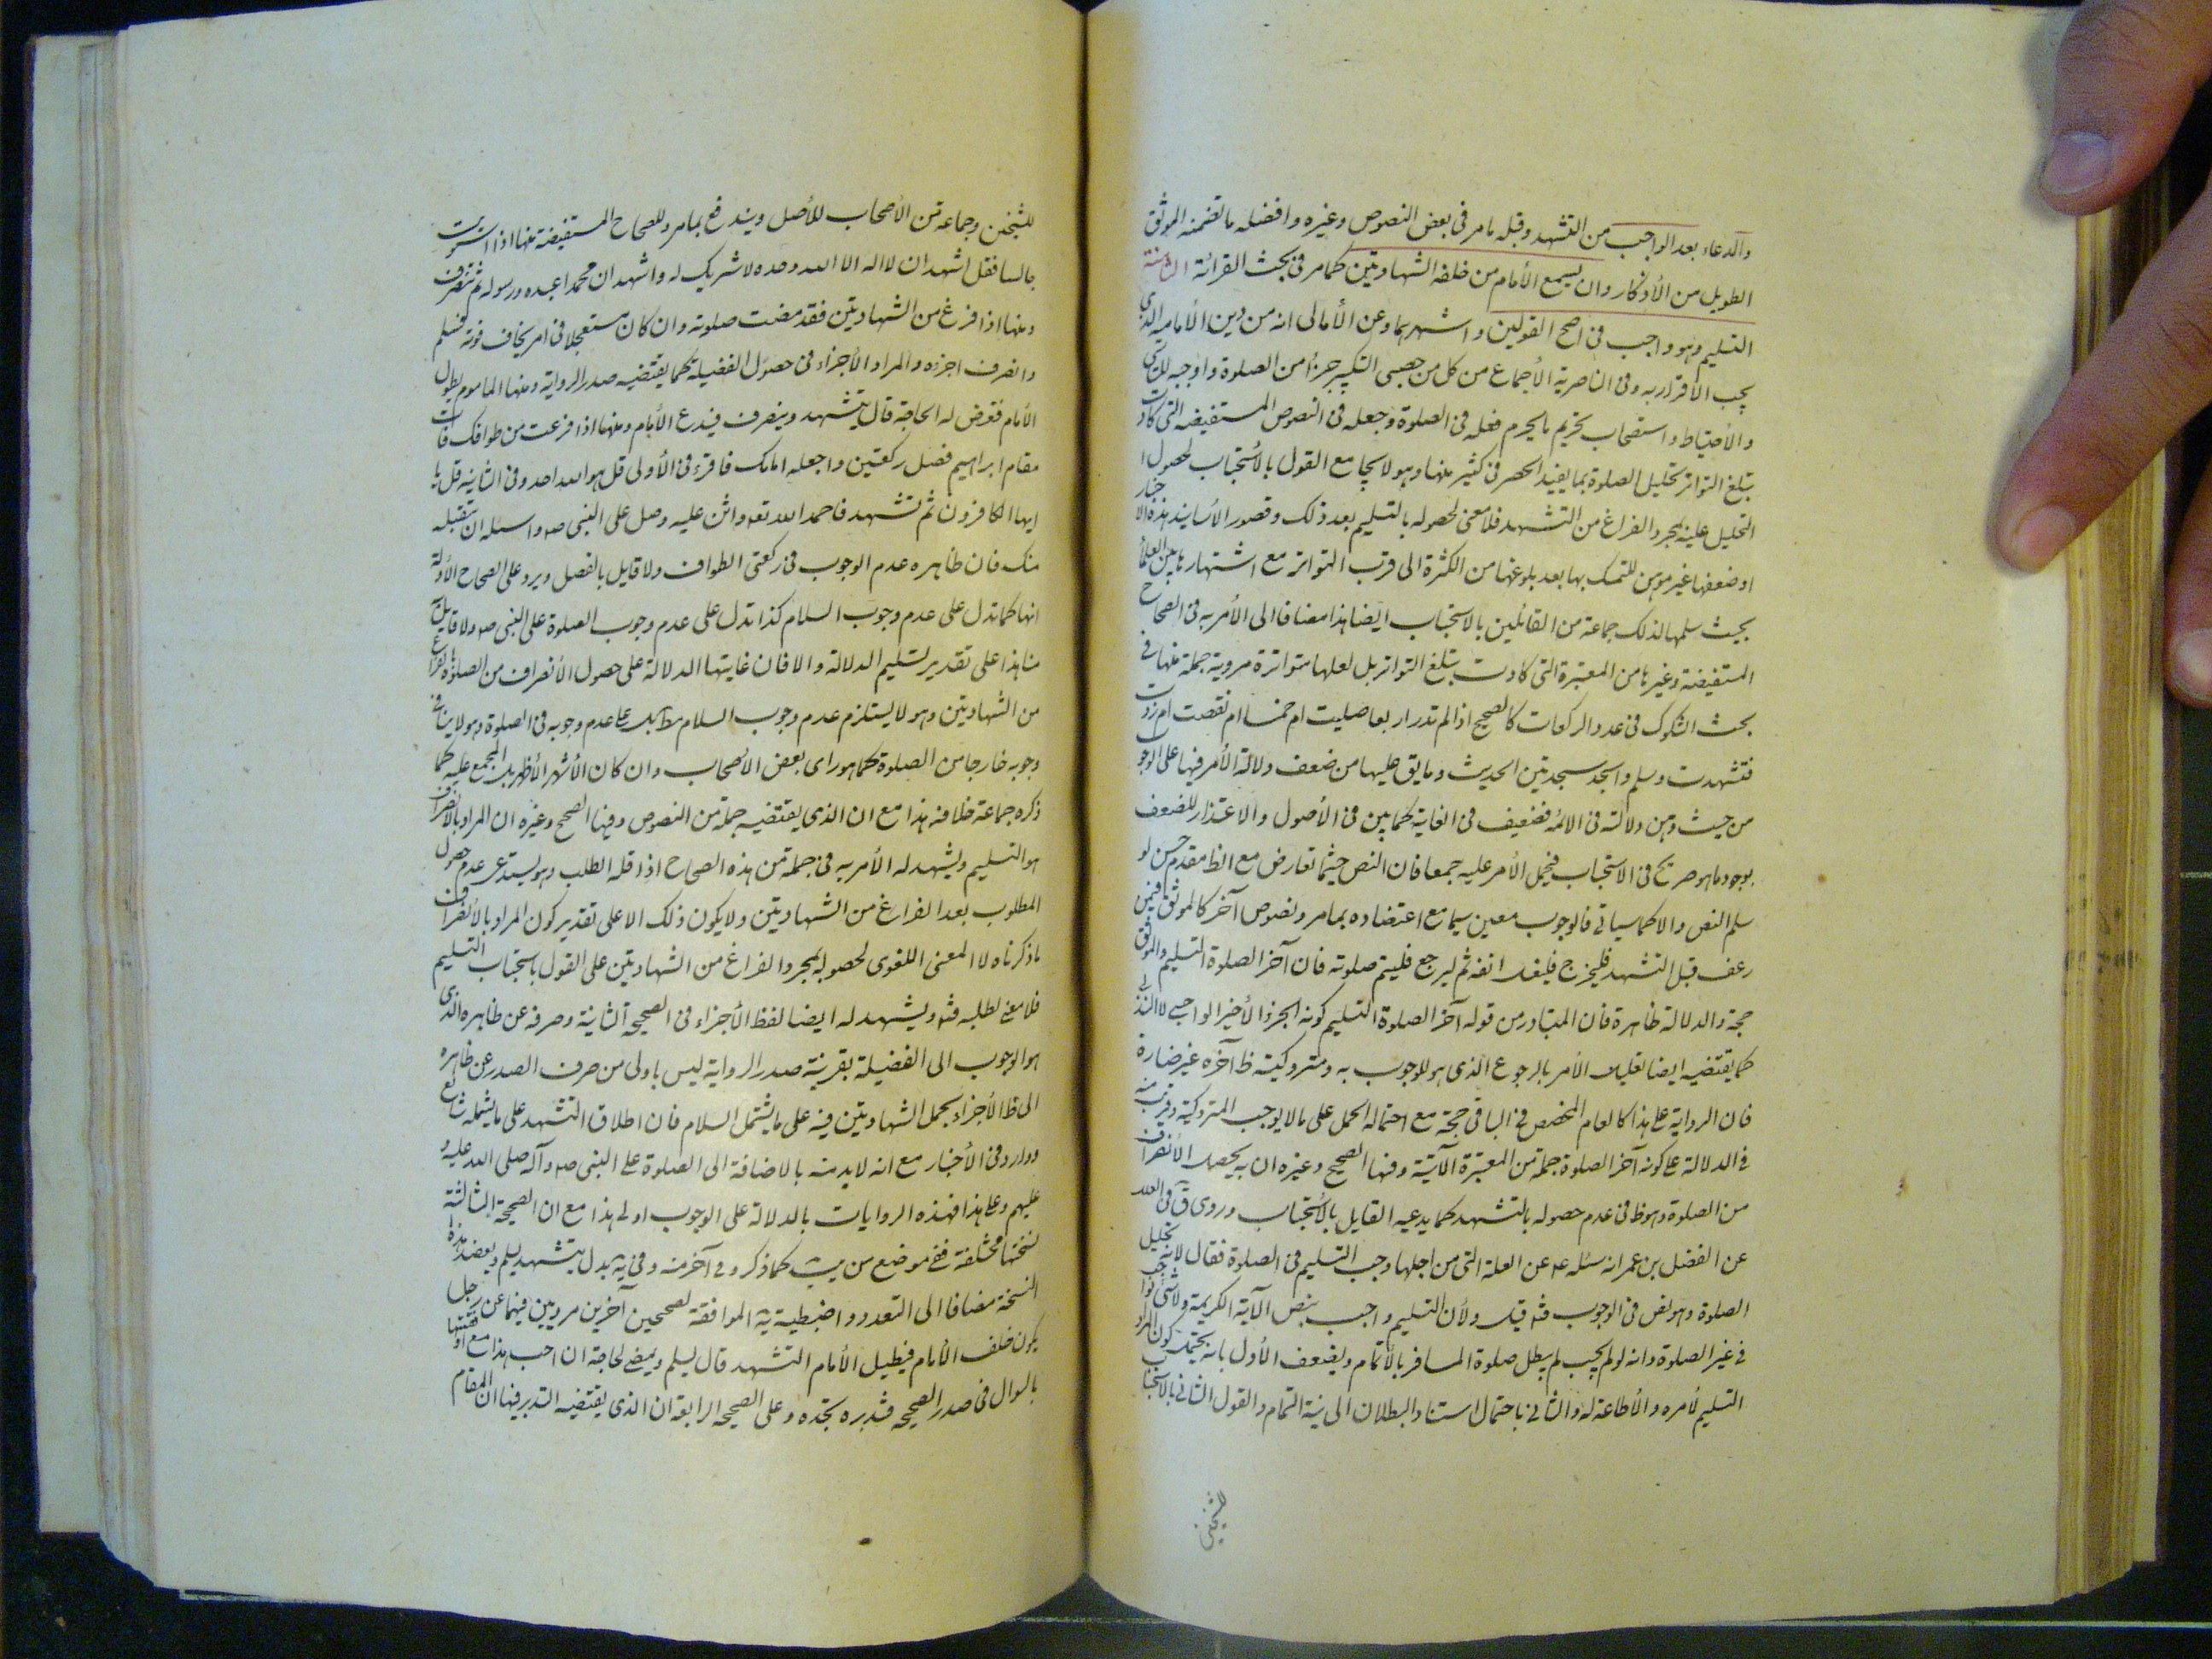 والدعاء بعد الواجب من التشهد وقبله بما مر فى بعض النصوص وغيره وافضله ما تضمنه الموثق
الطويل من الأذكار وان يسمع الأمام من خلفه الشهادتين كما مر فى بحث القرائة الثامنة
التسليم وهو واجب فى اصح القولين واشهرهما وعن الأمالى انه من دين الأمامية الذى
يجب الأقرار به وفى الناصرية الأجماع من كل من جعل التكبير جزءا من الصلوة واوجبه للتأسى
والأحتياط واستصحاب تحريم ما يحرم فعله فى الصلوة وجعله فى النصوص المستفيضه التى كادت
تبلغ التواتر تحليل الصلوة بما يفيد الحصر فى كثير منها وهو لا يجامع القول بالأستحباب لحصول
التحليل عليه بمجرد الفراغ من التشهد فلا معنى لحصوله بالتسليم بعد ذلك وقصور الأسانيد هذه الاخبار
او ضعفها غير موهن للتمسك بها بعد بلوغها من الكثرة الى قرب التواتر مع اشتهارها بين العلمأ
بحيث سلمها لذلك جماعة من القائلين بالاستحباب ايضا هذا مضافا الى الأمر به فى الصحاح
المستفيضة وغيرها من المعتبرة التى كادت تبلغ التواتر بل لعلها متواترة مروية جملة منها فى
بحث الشكوك فى عدد الركعات كالصحيح اذا لم تدر اربعا صليت ام خمسا ام نقصت ام زدت
فتشهد وسلم واسجد سجدتين الحديث وما يق عليها من ضعف دلالة الأمر فيها على الوجوب
من حيث وهن دلالته فى الائمه فضعيف فى الغاية كما بين فى الأصول والاعتذار للضعف
بوجود ما هو صريح فى الاستحباب فيحمل الأمر عليه جمعا فان النص حيثما تعارض مع الظ مقدم حسن لو
سلم النص والا كما سياتى فالوجوب معين سيما مع اعتضاده بما مر ونصوص آخر كالموثق فيمن
رعف قبل التشهد فليخرج فليغسل انفه ثم ليرجع فليتم صلوته فان آخر الصلوة التسليم والموثق
حجة والدلالة ظاهرة فان المتبادر من قوله آخر الصلوة التسليم كونه الجزؤ الأخير الواجبى لا الندبى
كما يقتضيه ايضا تعليل الأمر بالرجوع الذى هو للوجوب به ومتروكيته ظ آخره غير ضارة
فان الرواية على هذا كالعام المخصص فى الباقى حجة مع احتماله الحمل على ما لا يوجب المتروكية وقريب منه
فى الدلالة على كونه آخر الصلوة جملة من المعتبرة الآتية وفيها الصحيح وغيره ان به يحصل الأنصراف
من الصلوة وهو ظ فى عدم حصوله بالتشهد كما يدعيه القايل بالأستحباب وروى ق فى العلل
عن الفضل بن عمر انه سئله ع عن العلة التى من اجلها وجب التسليم فى الصلوة فقال لانه تحليل
الصلوة وهو نص فى الوجوب قيل ولأن التسليم واجب بنص الآية الكريمة ولا شئ
فى غير الصلوة وانه لو لم يجب لم يبطل صلوة المسافر بالأتمام ويضعف الأول بانه يحتمل كون المراد
التسليم لأمره والأطاعة له والثانى باحتمال استناد البطلان الى نية التمام والقول الثانى بالاستحباب
للشيخين
للشيخين وجماعة من الأصحاب للأصل ويندفع بما مر وللصحاح المستفيضة منها اذا استويت
جالسا فقل اشهد ان لا اله الا الله وحده لا شريك له واشهد ان محمدا عبده ورسوله ثم تنصرف
ومنها اذا فرغ من الشهادتين فقد مضت صلوته وان كان مستعجلا فى امر يخاف فوته فسلم
وانصرف اجزءه والمراد الأجزاء فى حصول الفضيلة كما يقتضيه صدر الرواية ومنها الماموم يطول
الأمام فتعرض له الحاجة قال يتشهد وينصرف فيدع الأمام ومنها اذا فرغت من طوافك فات
مقام ابراهيم فصل ركعتين واجعله امامك فاقرء فى الأولى قل هو الله احد وفى الثانيه قل يا
ايها الكافرون ثم تشهد فاحمد الله تعه واثن عليه وصل على النبى صه واسئله ان يتقبله
منك فان ظاهره عدم الوجوب فى ركعتى الطواف ولا قايل بالفصل ويرد على الصحاح الأولة
انها كما تدل على عدم وجوب السلام كذا تدل على عدم وجوب الصلوة على النبى صه ولا قايل به
منا هذا على تقدير تسليم الدلالة والا فان غايتها الدلالة على حصول الأنصراف من الصلوة بالفراغ
من الشهادتين وهو لا يستلزم عدم وجوب السلام مط بل على عدم وجوبه فى الصلوة وهو لا ينافى
وجوبه خارجا من الصلوة كما هو راى بعض الأصحاب وان كان الأشهر الأظهر بل المجمع عليه كما
ذكره جماعة خلافه هذا مع ان الذى يقتضيه جملة من النصوص وفيها الصحيح وغيره ان المراد بالأنصراف
هو التسليم ويشهد له الأمر به فى جملة من هذه الصحاح اذ اقله الطلب وهو يستدعى عدم حصول
المطلوب بعد الفراغ من الشهادتين ولا يكون ذلك الا على تقدير كون المراد بالأنصراف
ما ذكرناه لا المعنى اللغوى لحصوله بمجرد الفراغ من الشهادتين على القول باستحباب التسليم
فلا معنى لطلبه ويشهد له ايضا لفظ الأجزاء فى الصحيحة الثانية وصرفه عن ظاهره الذى
هو الوجوب الى الفضيلة بقرينة صدر الرواية ليس باولى من صرف الصدر عن ظاهره
الى ظ الأجزاء بحمل الشهادتين فيه على ما يشتمل السلام فان اطلاق التشهد على ما يشمله شايع
ووارد فى الأخبار مع انه لا بد منه بالاضافة الى الصلوة على النبى صه وآله صلى الله عليه و
عليهم وعلى هذا فهذه الروايات بالدلالة على الوجوب اولى هذا مع ان الصحيحة الثالثة
نسختها مختلفة ففى موضع من يب كما ذكر وفى آخر منه وفى يه بدل يتشهد يسلم ويعضد هذه
النسخة مضافا الى التعدد واضبطية يه الموافقة لصحيحين آخرين مرويين فيهما عن رجل
يكون خلف الأمام فيطيل الأمام التشهد قال يسلم ويمضى لحاجة ان احب هذا مع اوفقيتها
بالسوال فى صدر الصحيحه فتدبره تجده وعلى الصحيحه الرابعة ان الذى يقتضيه التدبر فيها ان المقام